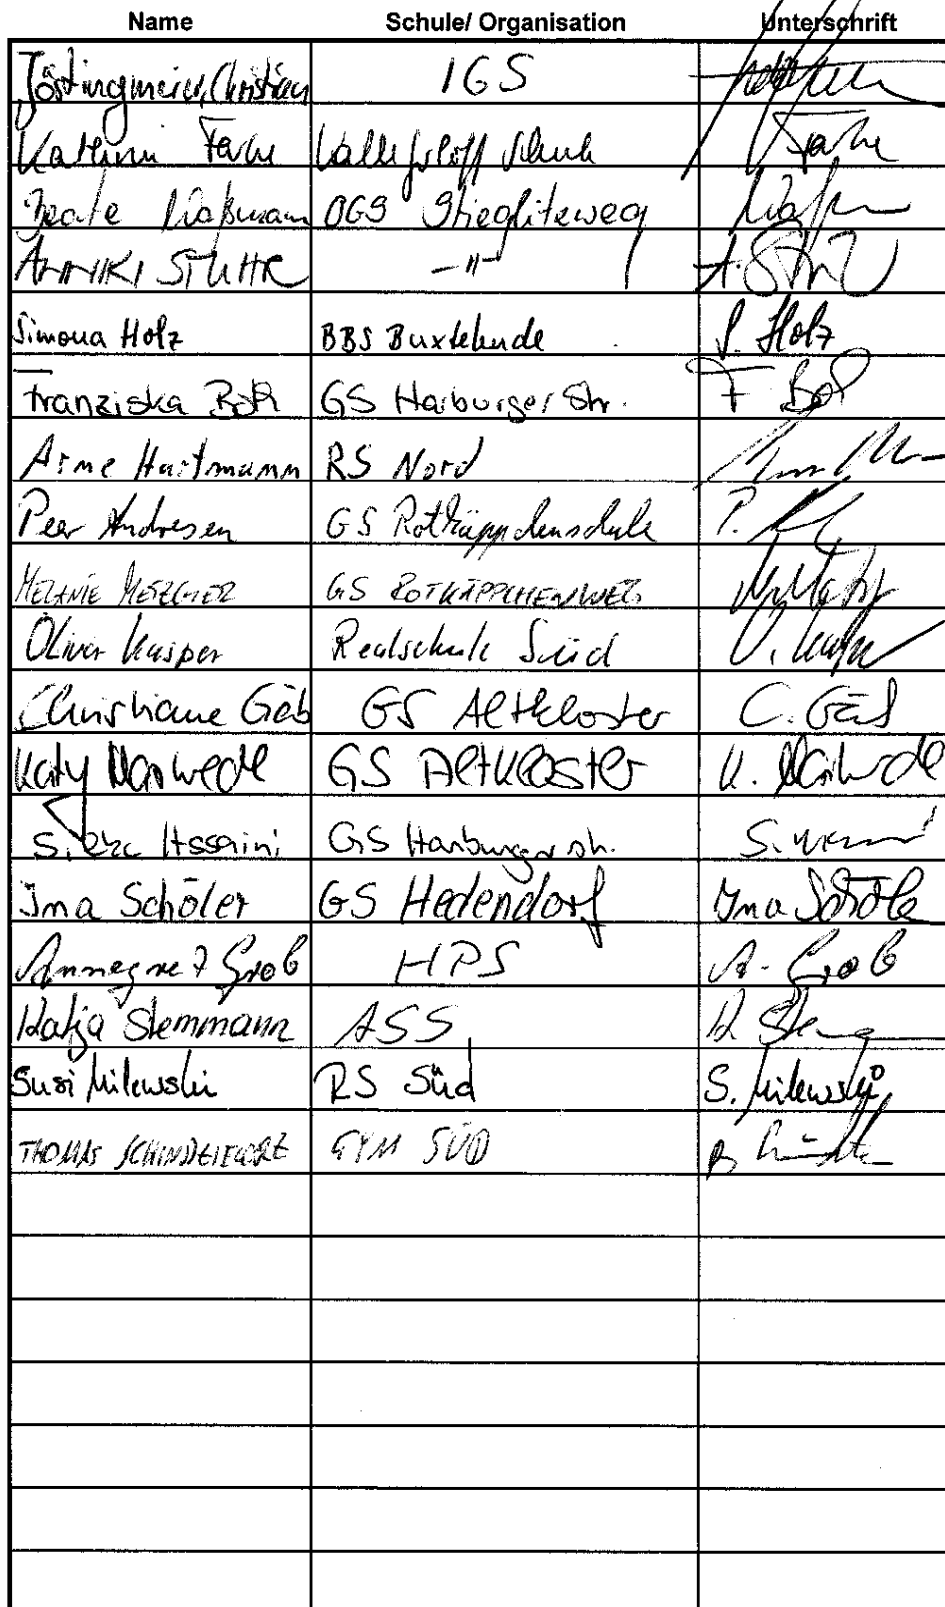 Name Schule/ Organisation Unterschrift
Jöstingmeier, Christian IGS
Kathrin
Beate Waßmann OGS Stieglitzweg
ANNIKI STUHR —"— A. Stuhr
Simona Holz BBS Buxtehude S. Holz
Franziska GS Harburger Str. F
Arne Hartmann RS Nord
Peer Andresen GS Rotkäppchenschule P.
MELANIE METZGER GS ROTKÄPPCHENWEG
Oliver Kasper Realschule Süd O. Kasper
Christiane Gäb GS Altkloster C. Gäb
Katy Marwede GS Altkloster K. Marwede
GS Harburger Str. S.
Ina Schöler GS Hedendorf Ina Schöler
Annegret Grob HPS A. Grob
Katja Stemmann ASS K
Susi Milewski RS Süd S. Milewski
THOMAS GYM SÜD